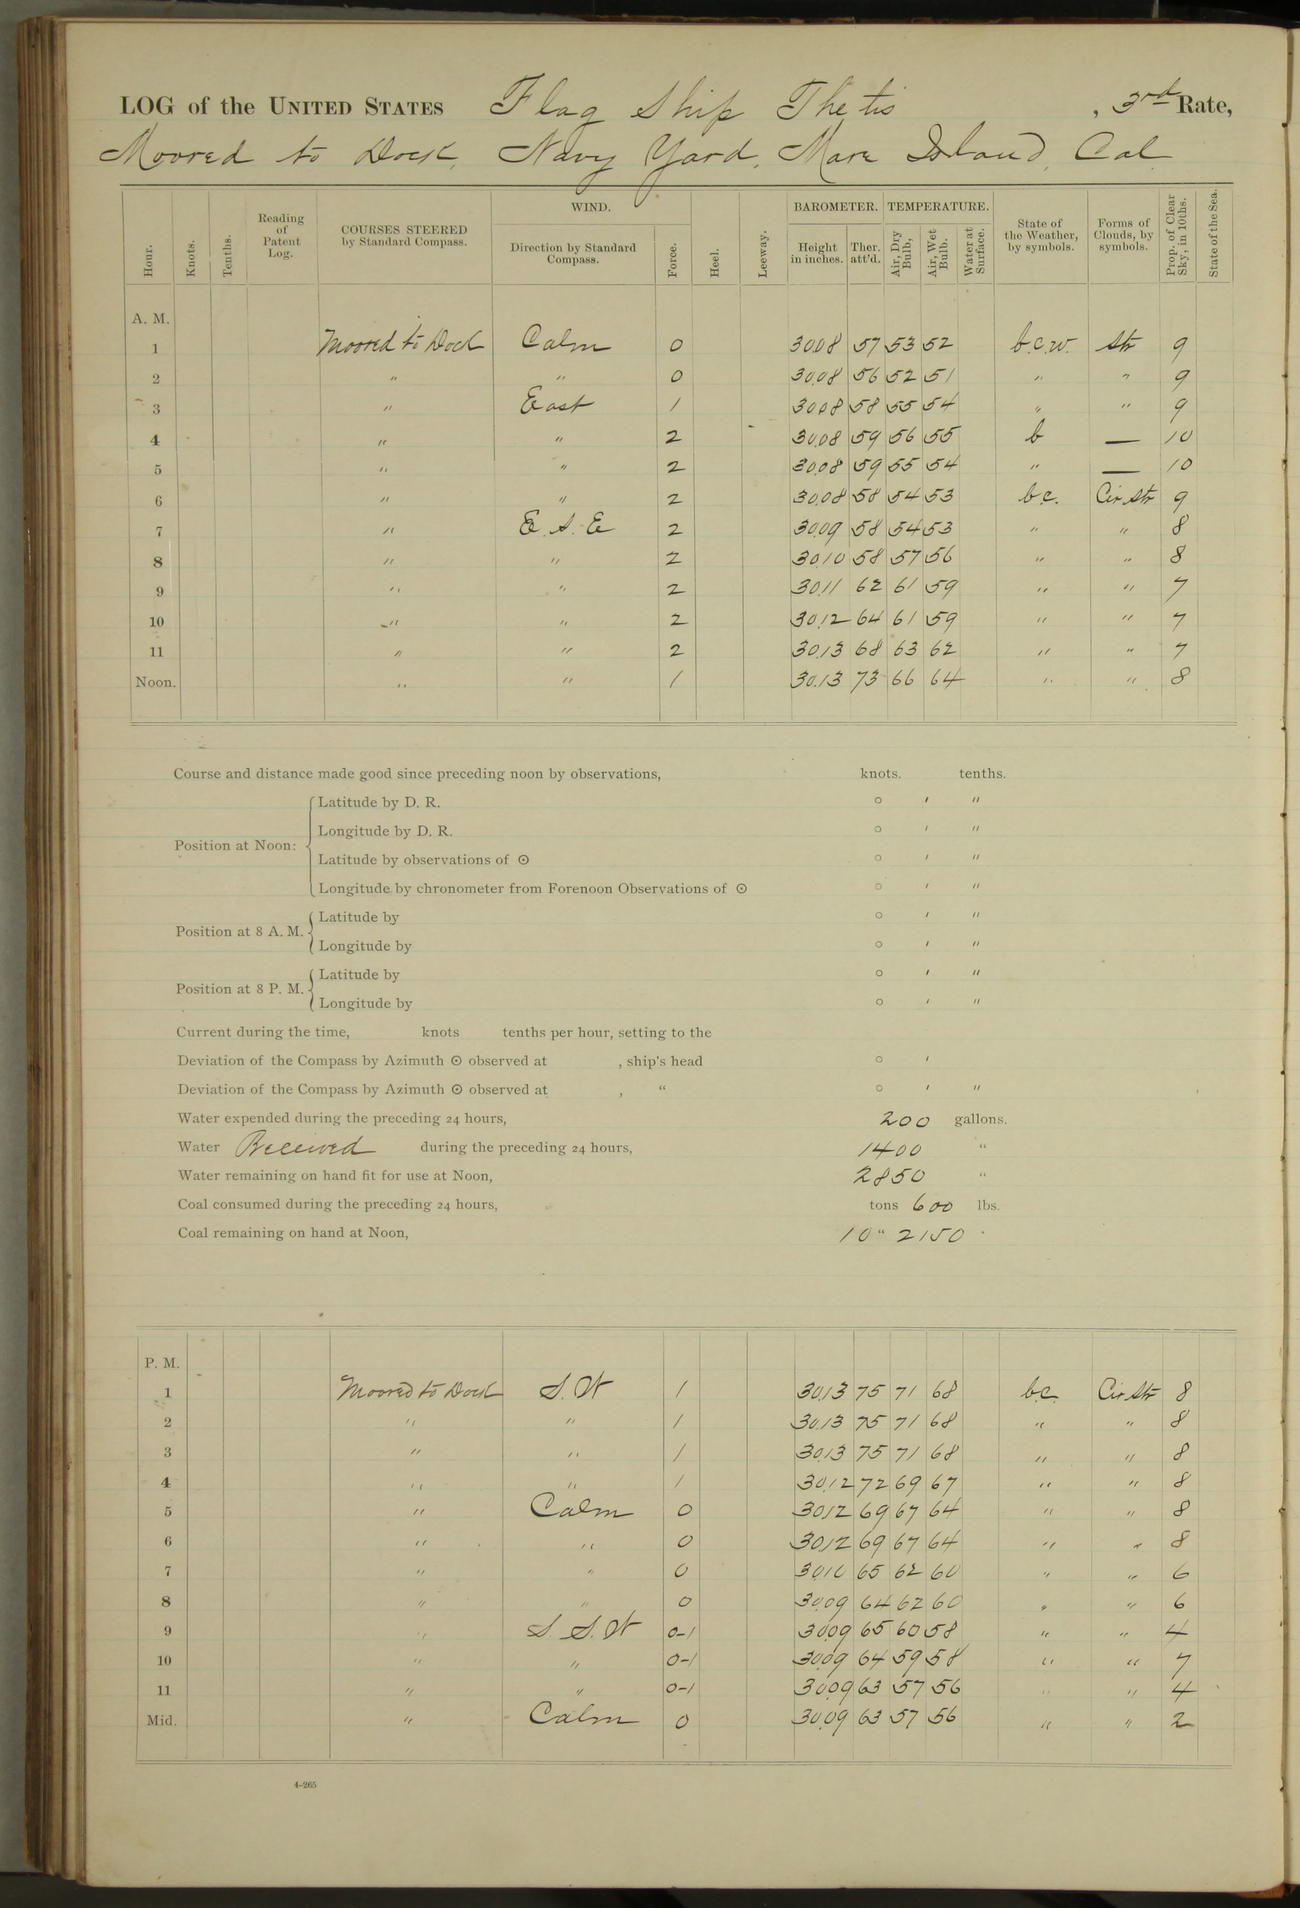 LOG of the UNITED STATES Flag Ship Thetis , 3rd Rate,
Moored to Dock, Navy Yard, Mare Island, Cal
Hour. Knots. Tenths. Reading of Patent Log. COURSES STEERED by Standard Compass. WIND. Direction by Standard Compass. Force. Heel. Leeway. BAROMETER. Height in inches. Ther. att'd. TEMPERATURE. Air, Dry Bulb, Air, Wet Bulb. Water at Surface. State of the Weather, by symbols. Forms of Clouds, by symbols. Prop. of Clear Sky, in 10ths. State of the Sea.
A. M.
1 Moored to Dock Calm 0 30.08 57 53 52 b.c.w. Str 9
2 " " 0 30.08 56 52 51 " " 9
3 " East 1 30.08 58 55 54 " " 9
4 " " 2 30.08 59 56 55 b — 10
5 " " 2 30.08 59 55 54 " — 10
6 " " 2 30.08 58 54 53 b.c. Cir Str 9
7 " E. S. E 2 30.09 58 54 53 " " 8
8 " " 2 30.10 58 57 56 " " 8
9 " " 2 30.11 62 61 59 " " 7
10 " " 2 30.12 64 61 59 " " 7
11 " " 2 30.13 68 63 62 " " 7
Noon. " " 1 30.13 73 66 64 " " 8
Course and distance made good since preceding noon by observations, knots. tenths.
Position at Noon: Latitude by D. R. ° ′ ″
Longitude by D. R. ° ′ ″
Latitude by observations of ⊙ ° ′ ″
Longitude by chronometer from Forenoon Observations of ⊙ ° ′ ″
Position at 8 A. M. Latitude by ° ′ ″
Longitude by ° ′ ″
Position at 8 P. M. Latitude by ° ′ ″
Longitude by ° ′ ″
Current during the time, knots tenths per hour, setting to the
Deviation of the Compass by Azimuth ⊙ observed at , ship's head ° ′
Deviation of the Compass by Azimuth ⊙ observed at , " ° ′ ″
Water expended during the preceding 24 hours, 200 gallons.
Water Received during the preceding 24 hours, 1400 "
Water remaining on hand fit for use at Noon, 2850 "
Coal consumed during the preceding 24 hours, tons 600 lbs.
Coal remaining on hand at Noon, 10 " 2150 "
P. M.
1 Moored to Dock S. W 1 30.13 75 71 68 b.c. Cir Str 8
2 " " 1 30.13 75 71 68 " " 8
3 " " 1 30.13 75 71 68 " " 8
4 " " 1 30.12 72 69 67 " " 8
5 " Calm 0 30.12 69 67 64 " " 8
6 " " 0 30.12 69 67 64 " " 8
7 " " 0 30.10 65 62 60 " " 6
8 " " 0 30.09 64 62 60 " " 6
9 " S. S. W 0-1 30.09 65 60 58 " " 4
10 " " 0-1 30.09 64 59 58 " " 7
11 " " 0-1 30.09 63 57 56 " " 4
Mid. " Calm 0 30.09 63 57 56 " " 2
4-265